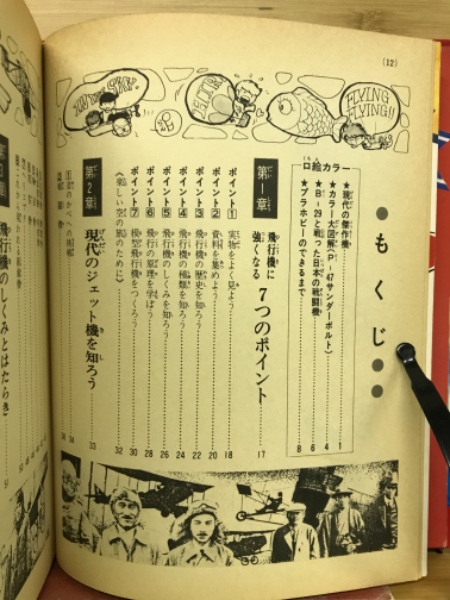 (12)
FLYING FLYING!!
AIR
IN THE SKY!
●もくじ●●
口絵カラー
★現代の傑作機……1
★カラー大図解〈P-47サンダーボルト〉……4
★B-29と戦った日本の戦闘機……6
★プラホビーのできるまで……8
第1章 飛行機に強くなる 7つのポイント……17
ポイント1 実物をよく見よう……18
ポイント2 資料を集めよう……20
ポイント3 飛行機の歴史を知ろう……22
ポイント4 飛行機の種類を知ろう……24
ポイント5 飛行機のしくみを知ろう……26
ポイント6 飛行の原理を学ぼう……28
ポイント7 模型飛行機をつくろう……30
《楽しい空の旅のために》……32
第2章 現代のジェット機を知ろう……33
飛行機のしくみとはたらき